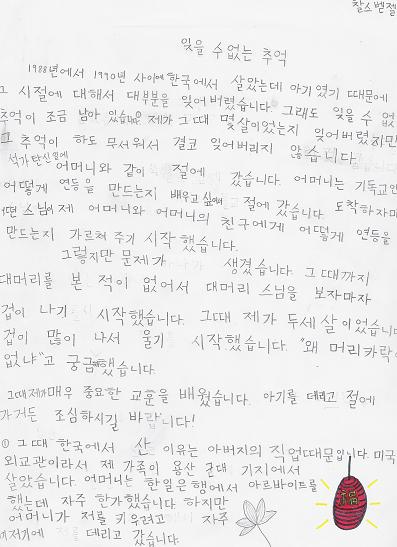 찰스 벤젤
잊을 수 없는 추억
1988년에서 1990년 사이에 한국에서 살았는데 아기였기 때문에
그 시절에 대해서 대부분을 잊어버렸습니다. 그래도 잊을 수 없
추억이 조금 남아 있습니다. 제가 그때 몇살이었는지 잊어버렸지만
그 추억이 하도 무서워서 결코 잊어버리지 않습니다.
석가탄신일에 어머니와 같이 절에 갔습니다. 어머니는 기독교인
어떻게 연등을 만드는지 배우고 싶어서 절에 갔습니다. 도착하자마
어떤 스님이 제 어머니와 어머니의 친구에게 어떻게 연등을
만드는지 가르쳐 주기 시작했습니다.
그렇지만 문제가 생겼습니다. 그때까지
대머리를 본 적이 없어서 대머리 스님을 보자마자
겁이 나기 시작했습니다. 그때 제가 두세살이었습니
겁이 많이 나서 울기 시작했습니다. "왜 머리카락이
없냐"고 궁금했습니다.
그때 제가 매우 중요한 교훈을 배웠습니다. 아기를 데리고 절에
가거든 조심하시길 바랍니다!
① 그때 한국에서 산 이유는 아버지의 직업때문입니다. 미국
외교관이라서 제 가족이 용산 군대 기지에서
살았습니다. 어머니는 한일은행에서 아르바이트를
했는데 자주 한가했습니다. 하지만
어머니가 저를 키우려고 자주
여저기에 저를 데리고 갔습니다.